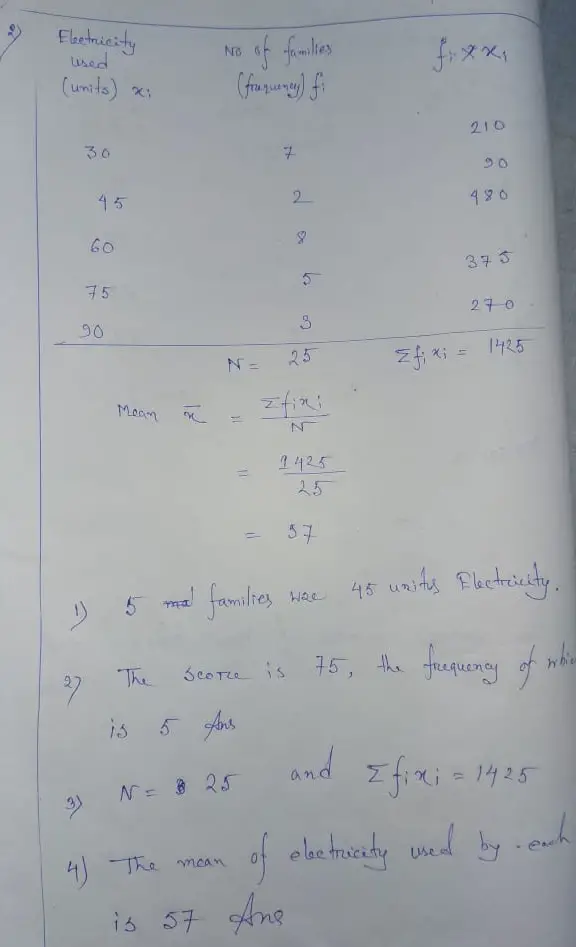 2) Electricity used (units) xi No of families (frequency) fi fi × xi
30 7 210
45 2 90
60 8 480
75 5 375
90 3 270
N = 25 Σfi xi = 1425
Mean x̄ = Σfi xi / N
= 1425 / 25
= 57
1) 5 families use 45 units Electricity.
2) The score is 75, the frequency of
is 5 Ans
3) N = 25 and Σfi xi = 1425
4) The mean of electricity used by each
is 57 Ans